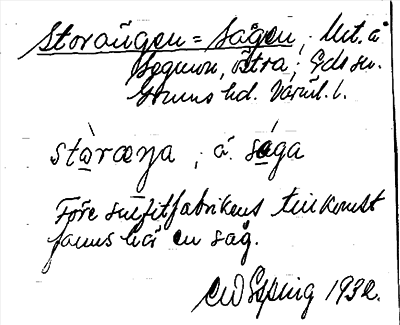 Storängen = Sågen, Urt. å
Segmon, östra; Eds sn.
Grums hd. Värml. l.
stòraŋa, å. sága
Före sulfitfabrikens tillkomst
fanns här en såg.
1932.